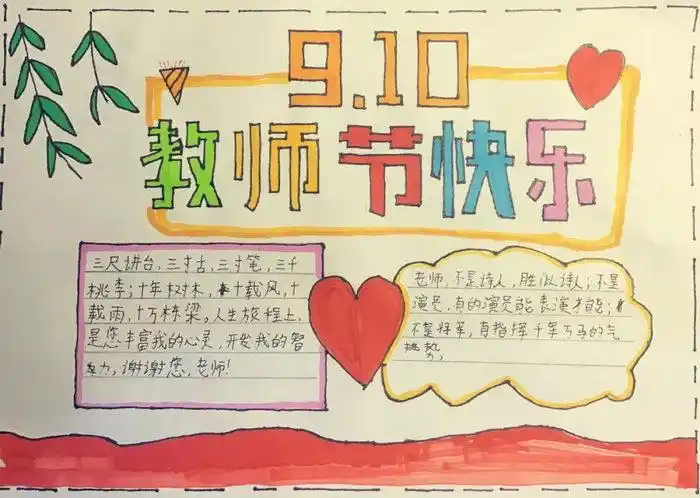 9.10
教师节快乐
三尺讲台,三寸舌,三寸笔,三千
桃李;十年树木,十载风,十
载雨,十万栋梁。人生旅程上,
是您丰富我的心灵,开发我的智
力,谢谢您,老师!
老师,不是诗人,胜似诗人;不是
演员,有的演员能表演才能;
不是将军,有指挥千军万马的气
势,